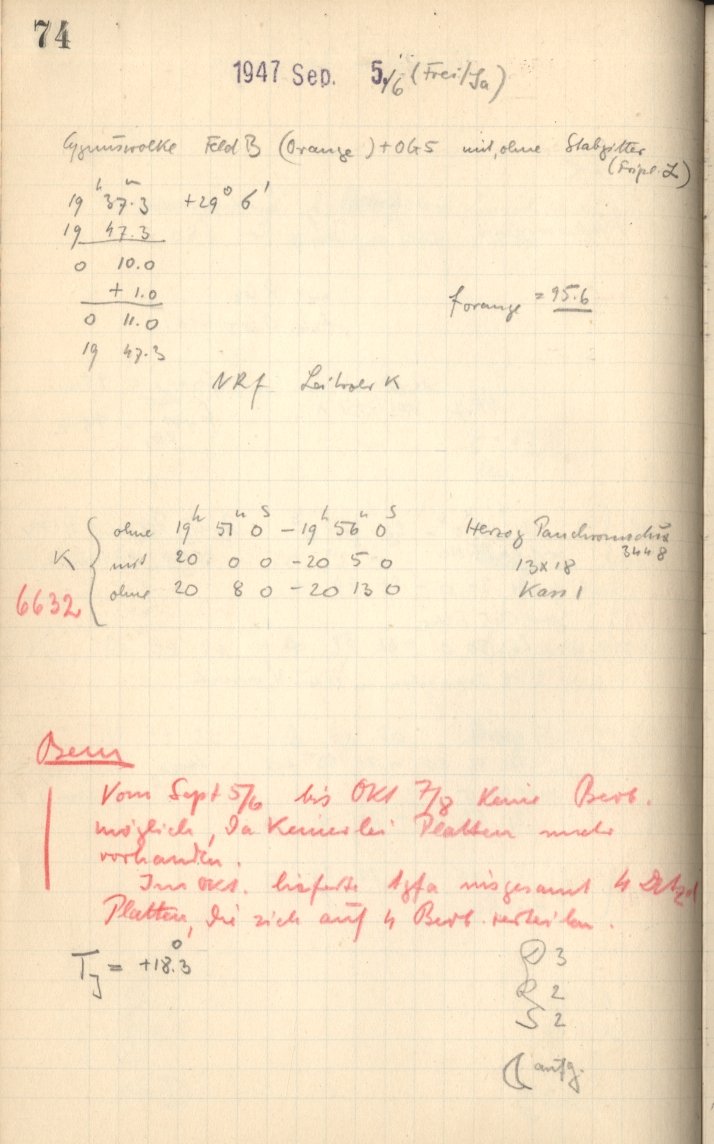 74
1947 Sep. 5./6 (Frei/Sa)
Cygnuswolke Feld B (Orange) + OG5 mit, ohne Stabgitter
(Tripl. L)
19h 37m.3 +29° 6'
19 47.3
0 10.0
+ 1.0
0 11.0
f orange = 95.6
19 47.3
NRf K
ohne 19h 51m 0s – 19h 56m 0s Herzog Panchromschix
3448
K mit 20 0 0 – 20 5 0 13x18
6632 ohne 20 8 0 – 20 13 0 Kass 1
Bem
Vom Sept 5/6 bis Okt 7/8 keine Beob.
möglich, da keinerlei Platten mehr
vorhanden.
Im Okt. lieferte Agfa insgesamt 4 Dtzd
Platten, die sich auf 4 Beob. verteilen.
TJ = +18°.3
D 3
R 2
S 2
☾ aufg.